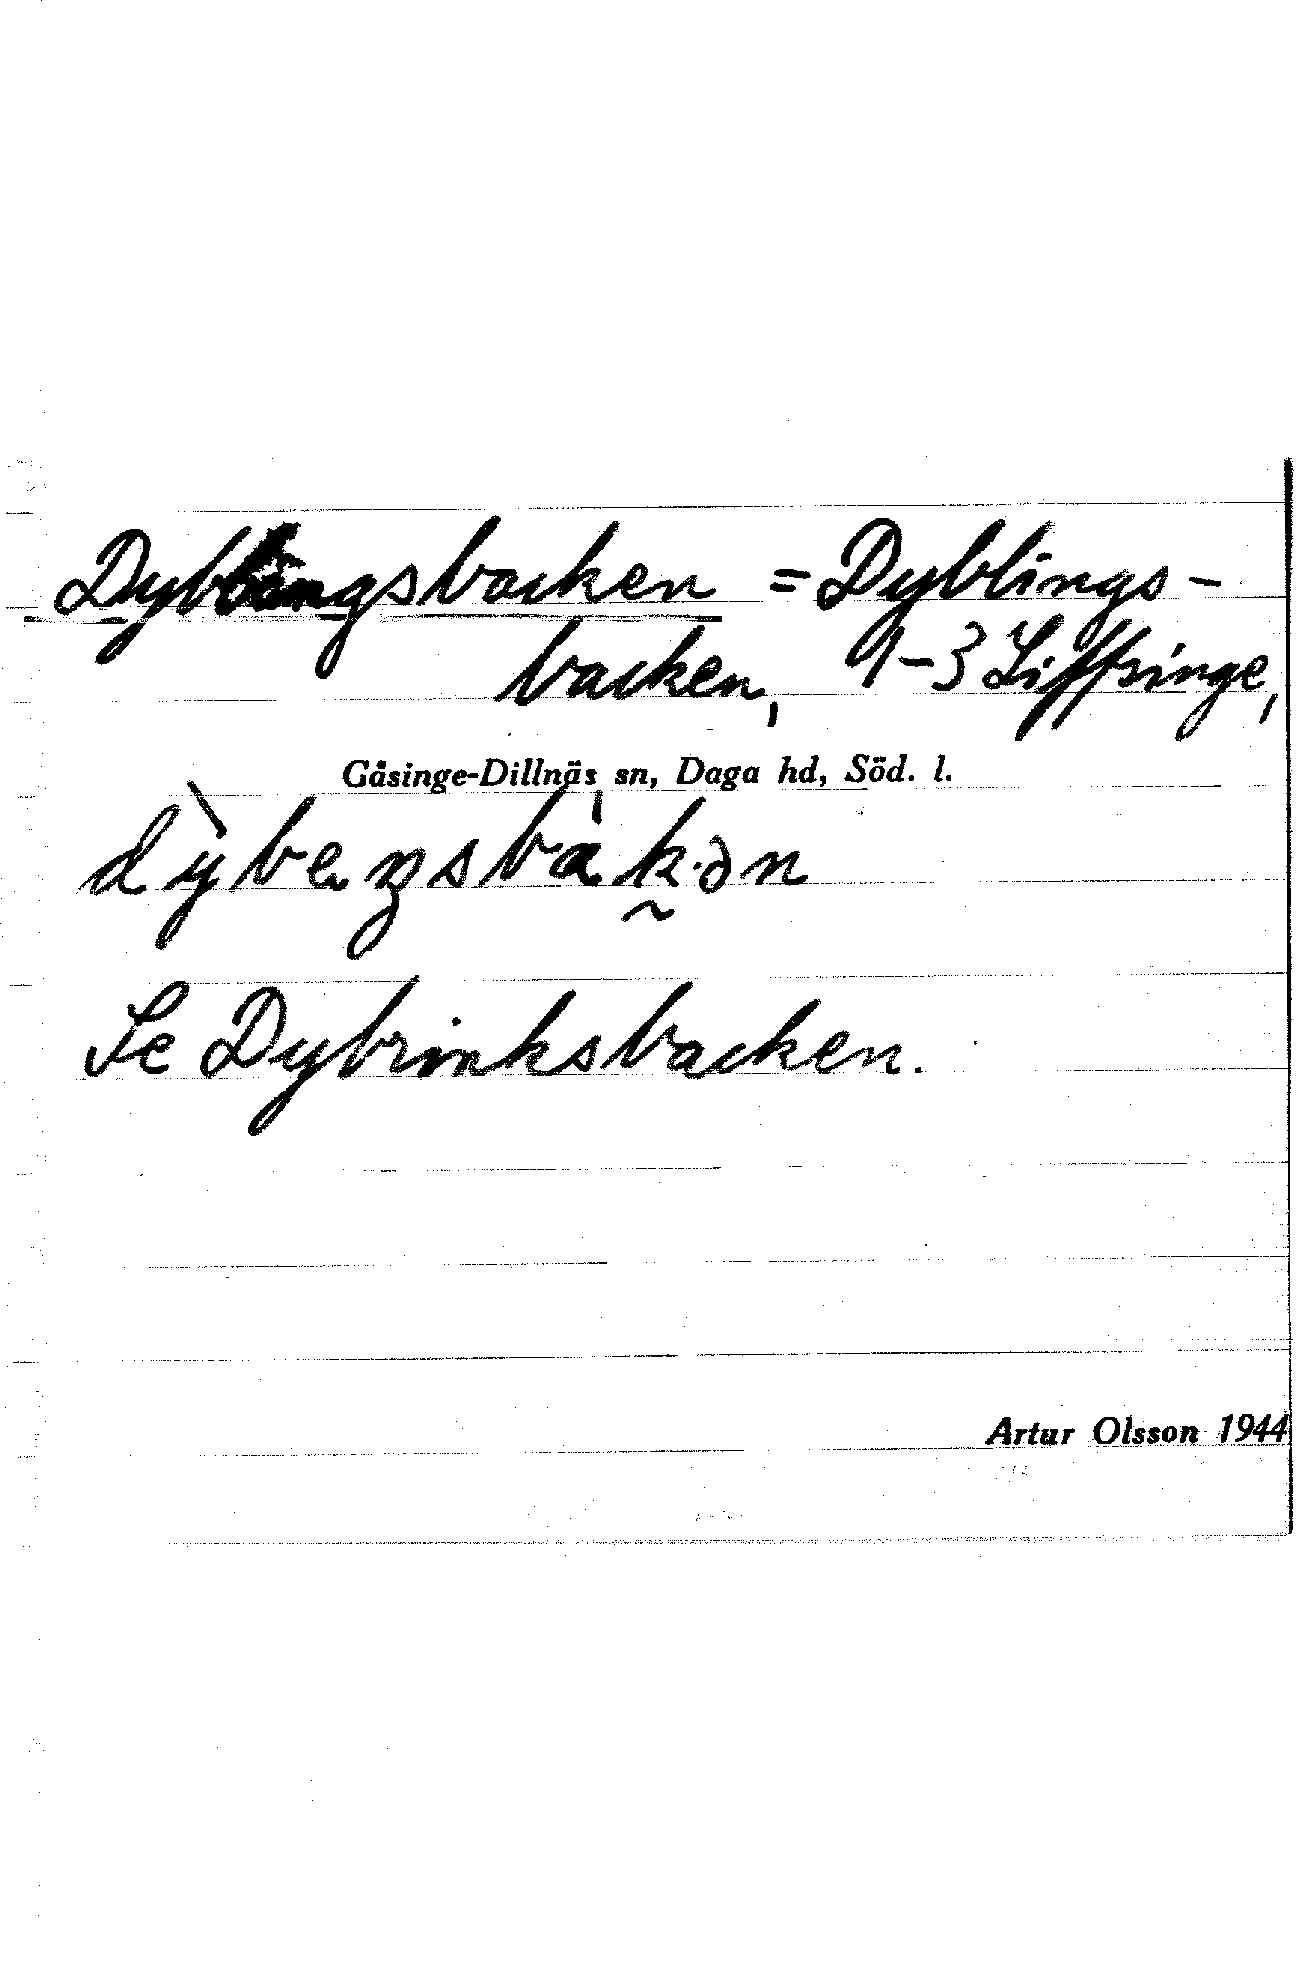 Dyblingsbacken = Dyblings-
backen, 1-3 Siffringe,
Gåsinge-Dillnäs sn, Daga hd, Söd. l.
Se Dybrinksbacken.
Artur Olsson 1944